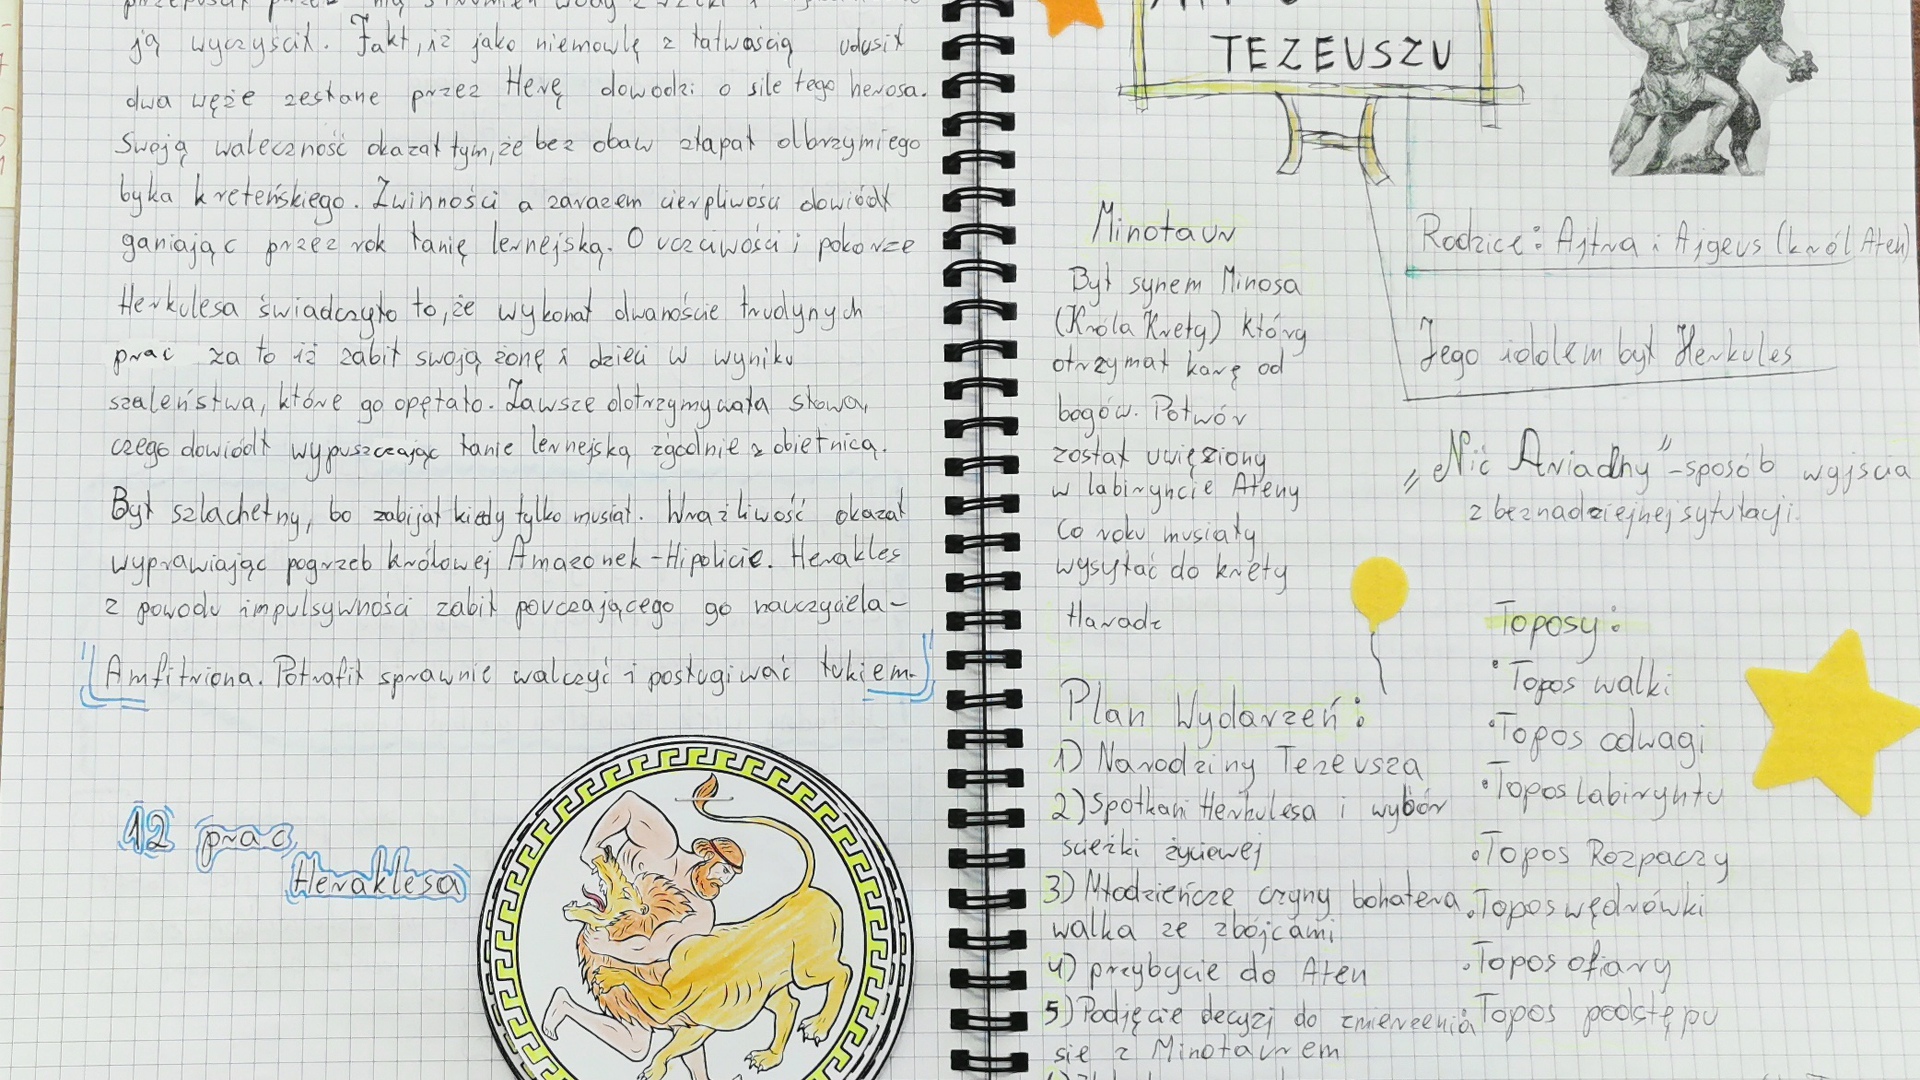 ją wyczyścił. Fakt, iż jako niemowlę z łatwością udusił
dwa węże zesłane przez Herę dowodzi o sile tego herosa.
Swoją waleczność okazał tym, że bez obaw złapał olbrzymiego
byka kreteńskiego. Zwinności a zarazem cierpliwości dowiódł
ganiając przez rok łanię lernejską. O uczciwości i pokorze
Herkulesa świadczyło to, że wykonał dwanoście trudynych
prac za to iż zabił swoją żonę i dzieci w wyniku
szaleństwa, które go opętało. Zawsze dotrzymywała słowa,
czego dowiódł wypuszczając łanie lernejską zgodnie z obietnicą.
Był szlachetny, bo zabijał kiedy tylko musiał. Wrażliwość okazał
wyprawiając pogrzeb królowej Amazonek - Hipolicie. Herakles
z powodu impulsywności zabił pouczającego go nauczyciela -
Amfitriona. Potrafił sprawnie walczyć i posługiwać łukiem.
12 prac
Heraklesa
TEZEUSZU
Rodzice: Ajtra i Ajgeus (król Aten)
Jego idolem był Herkules
„Nić Ariadny" - sposób wyjścia
z beznadziejnej sytutacji.
Minotaur
Był synem Minosa
(Króla Krety) który
otrzymał karę od
bogów. Potwór
został uwięziony
w labiryncie Ateny
Co roku musiały
wysyłać do krety
Haradz
Plan Wydarzeń:
1) Narodziny Tezeusza
2) Spotkani Herkulesa i wybór
scieżki życiowej
3) Młodzieńcze czyny bohatera
walka ze zbójcami
4) przybycie do Aten
5) Podjęcie decyzj do zmierzenia
się z Minotaurem
Toposy:
• Topos walki
• Topos odwagi
• Topos labiryntu
• Topos Rozpaczy
• Topos wędrówki
• Topos ofiary
Topos podstępu